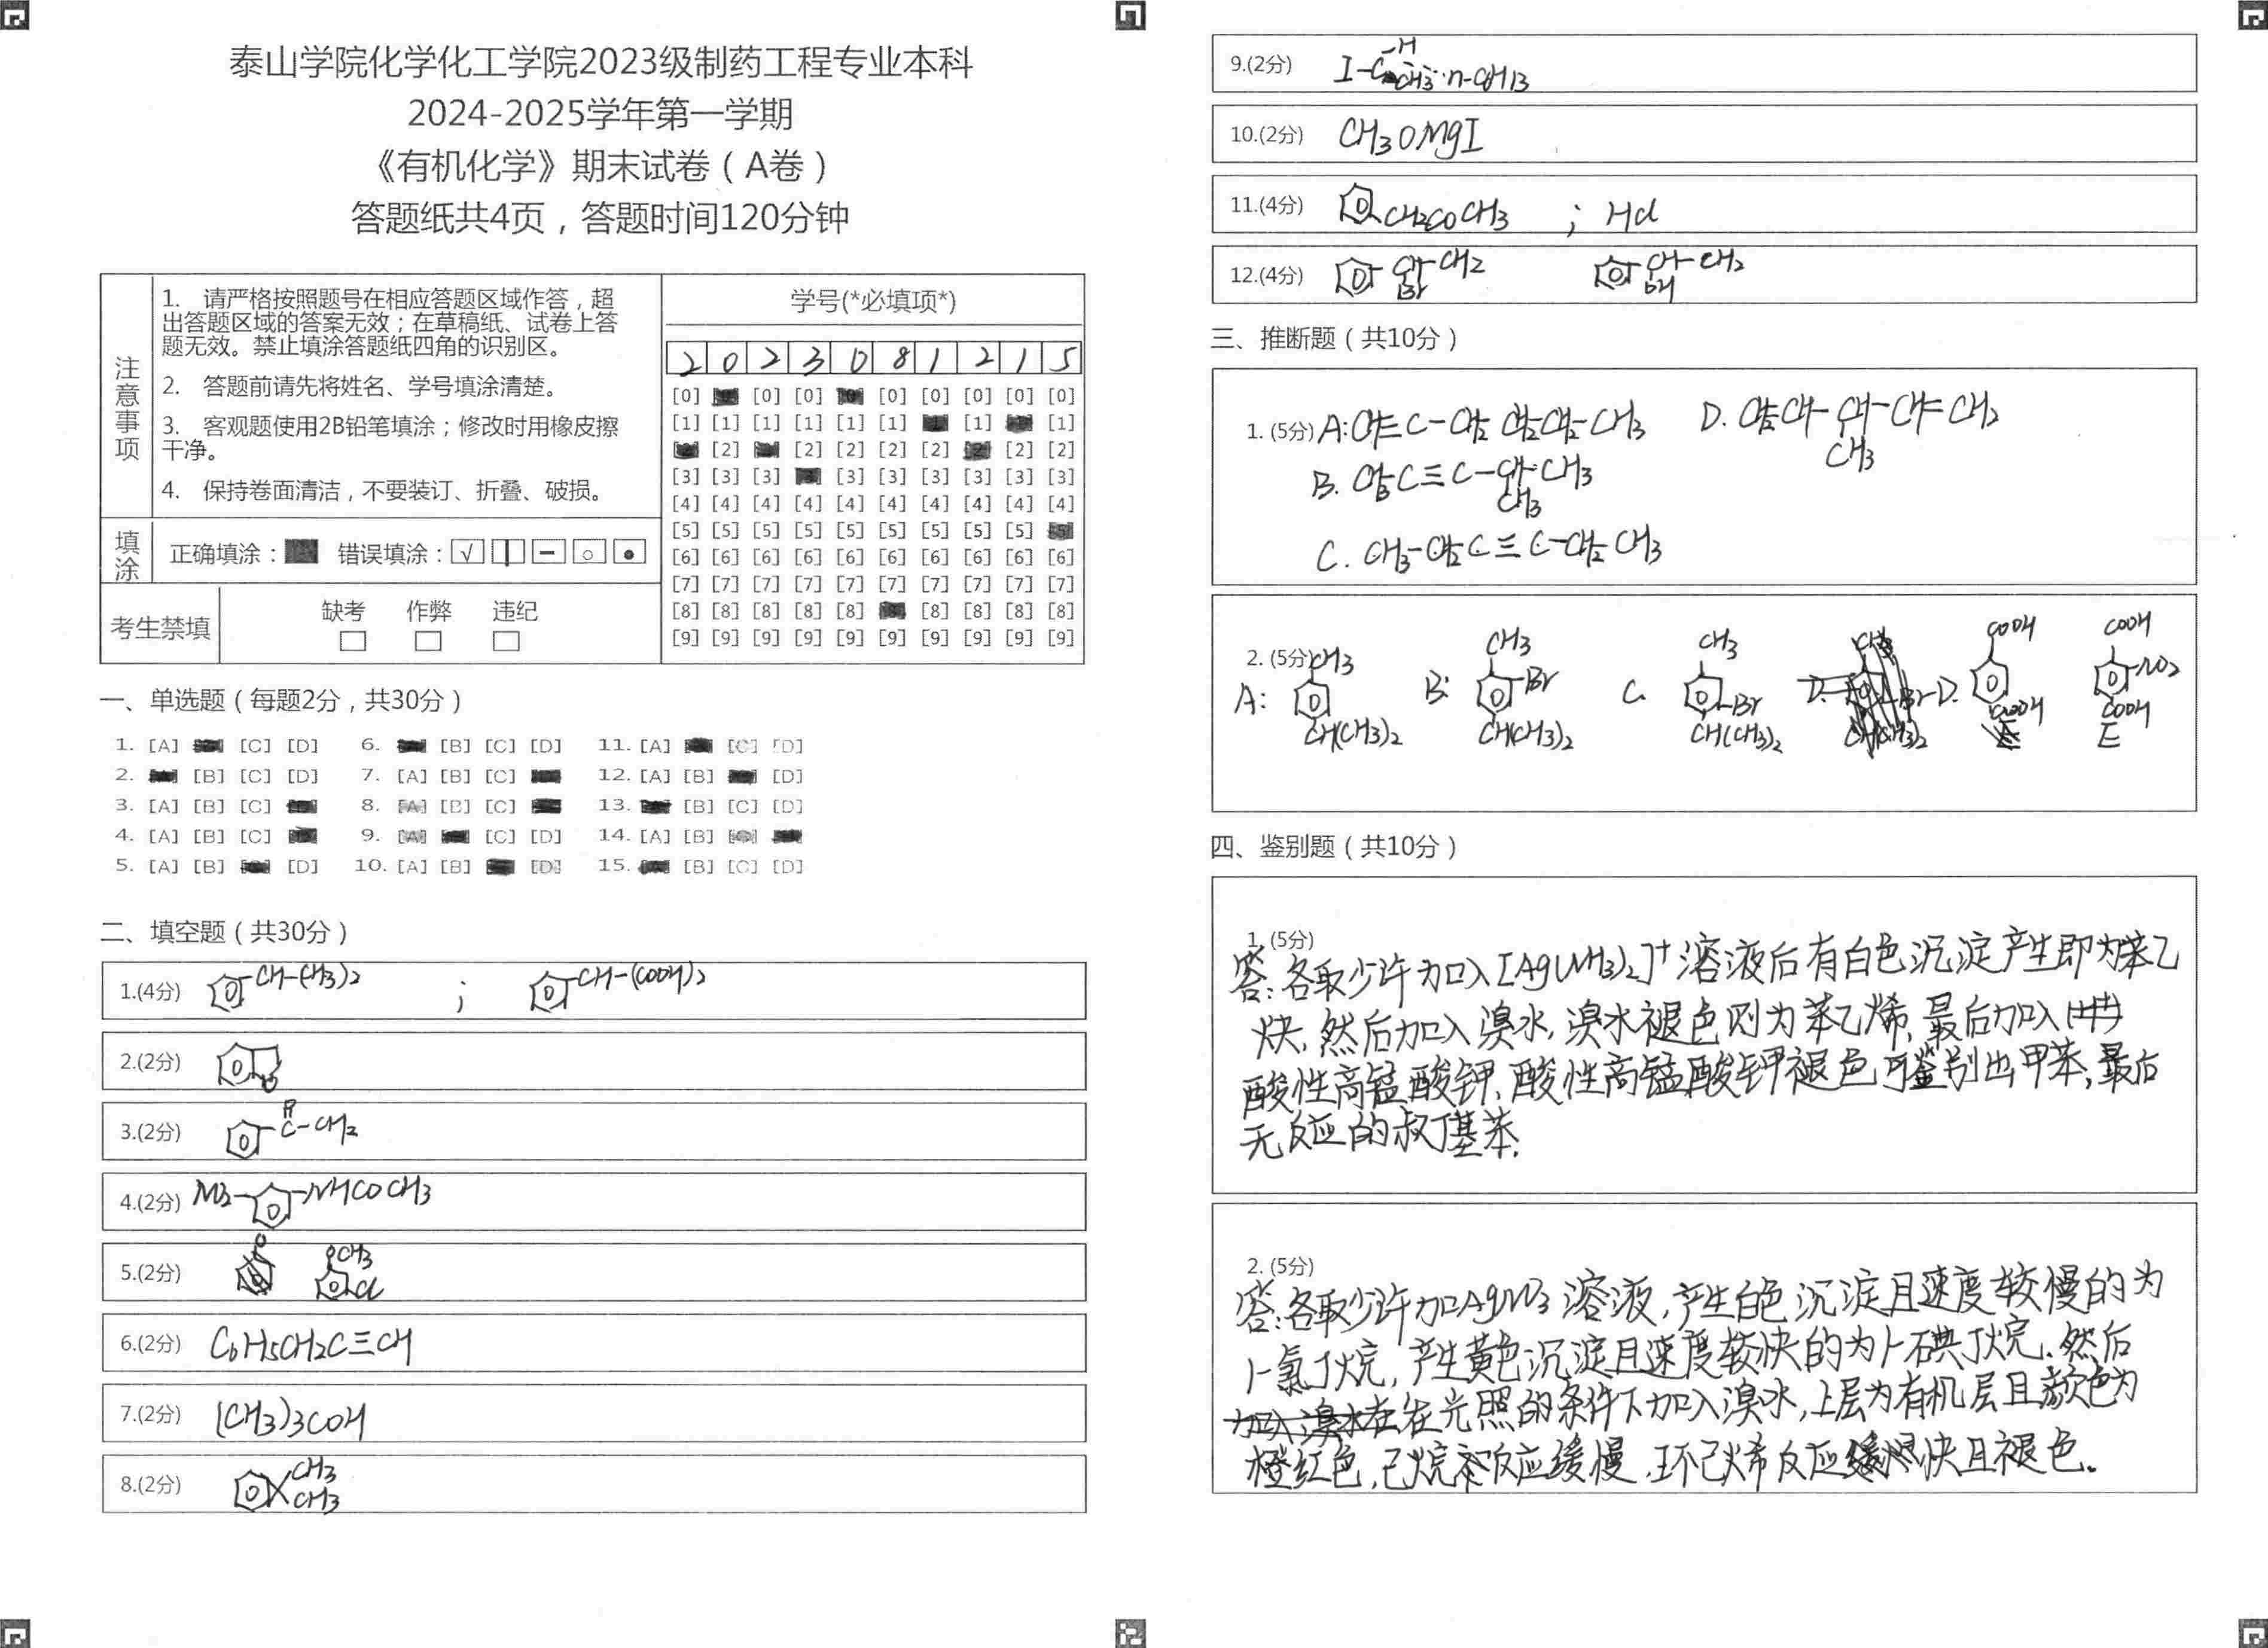 泰山学院化学化工学院2023级制药工程专业本科
2024-2025学年第一学期
《有机化学》期末试卷（A卷）
答题纸共4页，答题时间120分钟
注意事项
1. 请严格按照题号在相应答题区域作答，超
出答题区域的答案无效；在草稿纸、试卷上答
题无效。禁止填涂答题纸四角的识别区。
2. 答题前请先将姓名、学号填涂清楚。
3. 客观题使用2B铅笔填涂；修改时用橡皮擦
干净。
4. 保持卷面清洁，不要装订、折叠、破损。
填涂
正确填涂： 错误填涂：
考生禁填
缺考 作弊 违纪
学号(*必填项*)
2 0 2 3 0 8 1 2 1 5
[0] [0] [0] [0] [0] [0] [0] [0]
[1] [1] [1] [1] [1] [1] [1] [1]
[2] [2] [2] [2] [2] [2] [2]
[3] [3] [3] [3] [3] [3] [3] [3] [3]
[4] [4] [4] [4] [4] [4] [4] [4] [4] [4]
[5] [5] [5] [5] [5] [5] [5] [5] [5] [5]
[6] [6] [6] [6] [6] [6] [6] [6] [6] [6]
[7] [7] [7] [7] [7] [7] [7] [7] [7] [7]
[8] [8] [8] [8] [8] [8] [8] [8] [8]
[9] [9] [9] [9] [9] [9] [9] [9] [9] [9]
一、单选题（每题2分，共30分）
1. [A] [C] [D] 6. [B] [C] [D] 11. [A] [C] [D]
2. [B] [C] [D] 7. [A] [B] [C] 12. [A] [B] [D]
3. [A] [B] [C] 8. [A] [B] [C] 13. [B] [C] [D]
4. [A] [B] [C] 9. [A] [C] [D] 14. [A] [B] [C]
5. [A] [B] [D] 10. [A] [B] [D] 15. [B] [C] [D]
二、填空题（共30分）
1.(4分) CH-(CH3)2 ; CH-(COOH)2
2.(2分)
3.(2分) C-CH2
4.(2分) -NHCOCH3
5.(2分) OCH3 Cl
6.(2分) C6H5CH2C≡CH
7.(2分) (CH3)3COH
8.(2分) CH3 CH3
9.(2分)
10.(2分) CH3OMgI
11.(4分) CH2COCH3 ; HCl
12.(4分) CH-CH2 Br CH-CH2
三、推断题（共10分）
1. (5分) A: CH≡C-CH2 CH2CH2-CH3 D. CH2=CH-CH-CH=CH2
CH3
B. CH3C≡C-CH-CH3
CH3
C. CH3-CH2C≡C-CH2CH3
2. (5分) CH3 CH3 CH3 COOH COOH
A: B: Br C. Br D. NO2
CH(CH3)2 CH(CH3)2 CH(CH3)2 COOH COOH
E
四、鉴别题（共10分）
1. (5分)
答:各取少许加入[Ag(NH3)2]+溶液后有白色沉淀产生即为苯乙
炔,然后加入溴水,溴水褪色则为苯乙烯,最后加入
酸性高锰酸钾,酸性高锰酸钾褪色可鉴别出甲苯,最后
无反应的叔丁基苯.
2. (5分)
答:各取少许加AgNO3溶液,产生白色沉淀且速度较慢的为
1-氯丁烷,产生黄色沉淀且速度较快的为1-碘丁烷.然后
在光照的条件下加入溴水,上层为有机层且颜色为
橙红色,己烷反应缓慢,环己烯反应快且褪色。